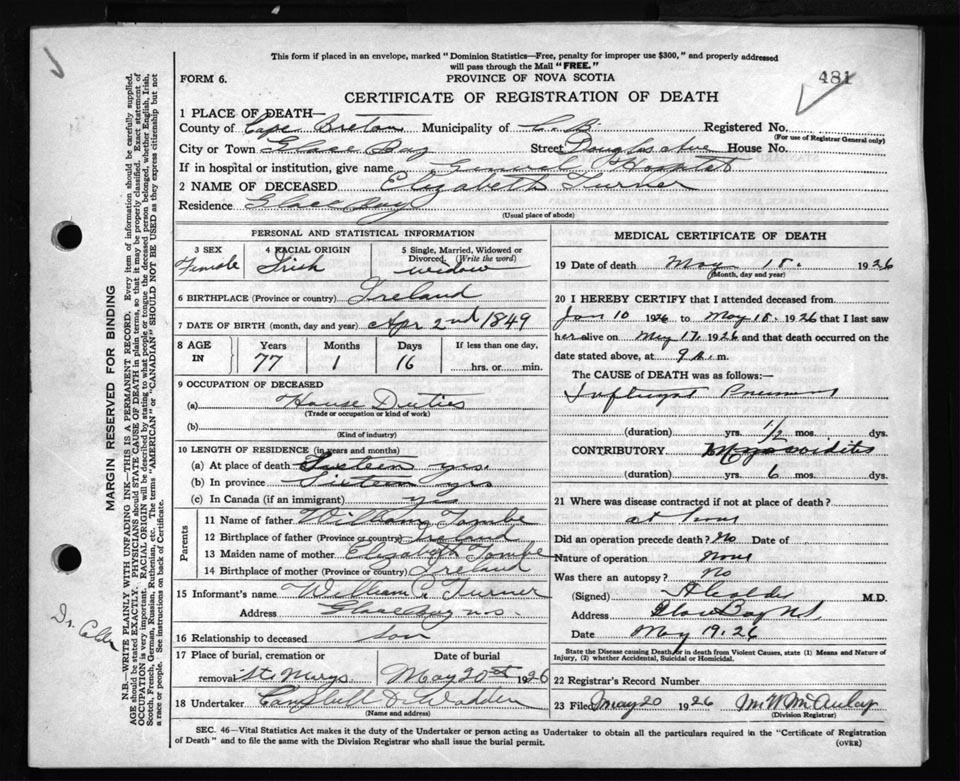 This form if placed in an envelope, marked "Dominion Statistics—Free, penalty for improper use $300," and properly addressed
will pass through the Mail "FREE."
FORM 6.
PROVINCE OF NOVA SCOTIA
481
CERTIFICATE OF REGISTRATION OF DEATH
1 PLACE OF DEATH—
County of Cape Breton Municipality of C.B. Registered No.
(For use of Registrar General only)
City or Town Glace Bay Street Douglas Ave House No.
If in hospital or institution, give name General Hospital
2 NAME OF DECEASED Elizabeth Turner
Residence Glace Bay
(Usual place of abode)
PERSONAL AND STATISTICAL INFORMATION
3 SEX 4 RACIAL ORIGIN 5 Single, Married, Widowed or
Divorced. (Write the word)
Female Irish widow
6 BIRTHPLACE (Province or country) Ireland
7 DATE OF BIRTH (month, day and year) Apr 2nd 1849
8 AGE IN Years Months Days If less than one day,
77 1 16 hrs. or min.
9 OCCUPATION OF DECEASED
(a) House Duties
(Trade or occupation or kind of work)
(b)
(Kind of industry)
10 LENGTH OF RESIDENCE (in years and months)
(a) At place of death Sixteen yrs.
(b) In province Sixteen yrs
(c) In Canada (if an immigrant) yes
Parents
11 Name of father William Tombe
12 Birthplace of father (Province or country) Ireland
13 Maiden name of mother Elizabeth Tombe
14 Birthplace of mother (Province or country) Ireland
15 Informant's name William C. Turner
Address Glace Bay N.S.
16 Relationship to deceased Son
17 Place of burial, cremation or Date of burial
removal St Marys May 20th 1926
18 Undertaker Campbell & Wadden
(Name and address)
MEDICAL CERTIFICATE OF DEATH
19 Date of death May 18. 1926
(Month, day and year)
20 I HEREBY CERTIFY that I attended deceased from
Jan 10 1926 to May 18. 1926 that I last saw
her alive on May 17. 1926 and that death occurred on the
date stated above, at 9 m.
The CAUSE of DEATH was as follows:—
(duration) yrs. 1/2 mos. dys.
CONTRIBUTORY Myocarditis
(duration) yrs. 6 mos. dys.
21 Where was disease contracted if not at place of death?
at
Did an operation precede death? No Date of
Nature of operation None
Was there an autopsy? No
(Signed) A Calder M.D.
Address Glace Bay NS
Date May 19. 26
State the Disease causing Death, or in death from Violent Causes, state (1) Means and Nature of
Injury, (2) whether Accidental, Suicidal or Homicidal.
22 Registrar's Record Number
23 Filed May 20 1926 M W McAulay
(Division Registrar)
SEC. 46—Vital Statistics Act makes it the duty of the Undertaker or person acting as Undertaker to obtain all the particulars required in the "Certificate of Registration
of Death" and to file the same with the Division Registrar who shall issue the burial permit.
(OVER)
MARGIN RESERVED FOR BINDING
N.B.—WRITE PLAINLY WITH UNFADING INK—THIS IS A PERMANENT RECORD. Every item of information should be carefully supplied.
AGE should be stated EXACTLY. PHYSICIANS should STATE CAUSE OF DEATH in plain terms, so that it may be properly classified. Exact statement of
OCCUPATION is very important. RACIAL ORIGIN will be described by stating to what people or tongue the deceased person belonged, whether English, Irish,
Scotch, French, German, Russian, Ruthenian, etc. The terms "AMERICAN" or "CANADIAN" SHOULD NOT BE USED as they express citizenship but not
a race or people. See instructions on back of Certificate.
Dr. Calder